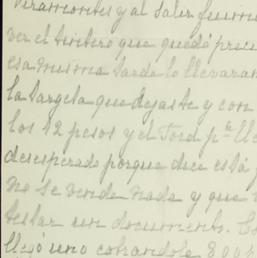 Viramontes y al salir fuimos
ver el tintero que quedó
esa misma tarde lo llevaran
la tarjeta que dejaste y con
los 12 pesos y el Ford pª
desesperado porque dice está
no se vende nada y que
testar un documento.
llegó uno cobrandole 800